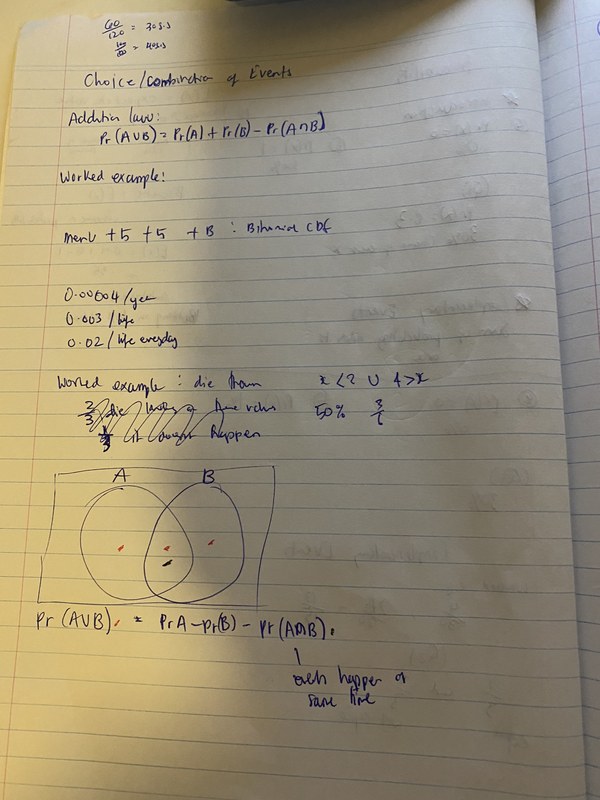 60/120 = 30s.s
= 40s.s
Choice/Combination of Events
Addition law:
Pr(A∪B) = Pr(A) + Pr(B) - Pr(A∩B)
Worked example:
menu +5 +5 +B : Binomial CDF
0.00004/year
0.003/life
0.02/life everyday
Worked example: die thrown x<2 ∪ 4>x
2/3 die 50% 3/6
1/3 it doesn't happen
A B
Pr(A∪B) = PrA-Pr(B)-Pr(A∩B).
happen at
same time